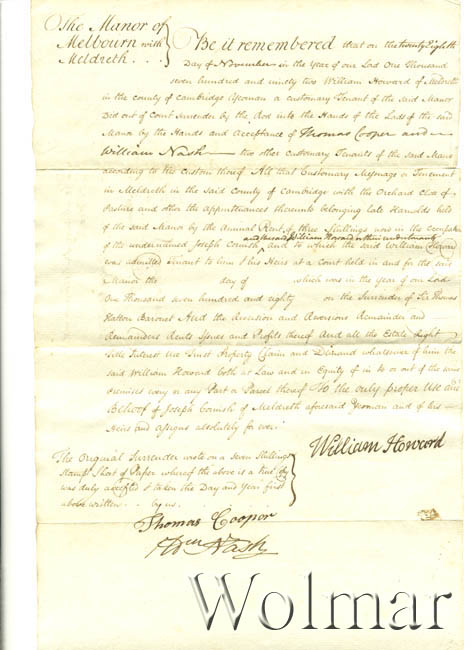 The Manor of
Melbourn with
Meldreth . . .
Be it remembered that on the twenty Eighth
Day of November in the Year of our Lord One Thousand
seven hundred and ninety two William Howard of Meldreth
in the county of Cambridge Yeoman a customary Tenant of the said Manor
Did out of Court surrender by the Rod into the Hands of the Lord of the said
Manor by the Hands and Acceptance of Thomas Cooper and
William Nash two other customary Tenants of the said Manor
according to the custom thereof All that Customary Messuage or Tenement
in Meldreth in the said County of Cambridge with the Orchard close of
Pasture and other the appurtenances thereunto belonging late Harolds held
of the said Manor by the Annual Rent of three Shillings now in the occupation
and the said William Howard
of the undermentioned Joseph Cornish and to which the said William Howard
was admitted Tenant to him & his Heirs at a Court held in and for the said
Manor the day of which was in the Year of our Lord
One Thousand seven hundred and eighty on the Surrender of Sir Thomas
Hatton Baronet And the Reversion and Reversions Remainder and
Remainders Rents Issues and Profits thereof And all the Estate Right
Title Interest Use Trust Property Claim and Demand whatsoever of him the
said William Howard both at Law and in Equity of in to or out of the same
premises every or any Part or Parcel thereof To the only proper Use and
Behoof of Joseph Cornish of Meldreth aforesaid Yeoman and of his
Heirs and Assigns absolutely for ever
William Howard
The Original Surrender wrote on a seven Shillings
Stamp Sheet of Paper whereof the above is a true Copy
was duly accepted & taken the Day and Year first
above written . . by us.
Thomas Cooper
Wm Nash
Wolmar